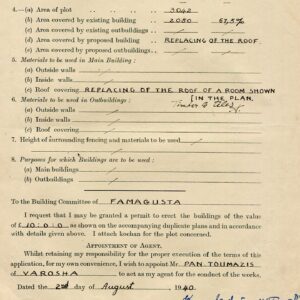 4.—(a) Area of plot .. .. .. .. 3042
(b) Area covered by existing building .. 2050 67,5%
(c) Area covered by existing outbuildings ..
(d) Area covered by proposed building .. REPLACING OF THE ROOF.
(e) Area covered by proposed outbuildings ..
5. Materials to be used in Main Building :
(a) Outside walls
(b) Inside walls
(c) Roof covering REPLACING OF THE ROOF OF A ROOM SHOWN
[IN THE PLAN.
6. Materials to be used in Outbuildings :
(a) Outside walls
(b) Inside walls
(c) Roof covering
7. Height of surrounding fencing and materials to be used
8. Purposes for which Buildings are to be used :
(a) Main buildings
(b) Outbuildings
To the Building Committee of FAMAGUSTA
I request that I may be granted a permit to erect the buildings of the value
of £10:0:0 as shown on the accompanying duplicate plans and in accordance
with details given above. I attach kochan for the plot concerned.
APPOINTMENT OF AGENT.
Whilst retaining my responsibility for the proper execution of the terms of this
application, for my own convenience, I wish to appoint Mr. PAN. TOUMAZIS
of VAROSHA to act as my agent for the conduct of the works.
Dated the 2nd day of August 1940.